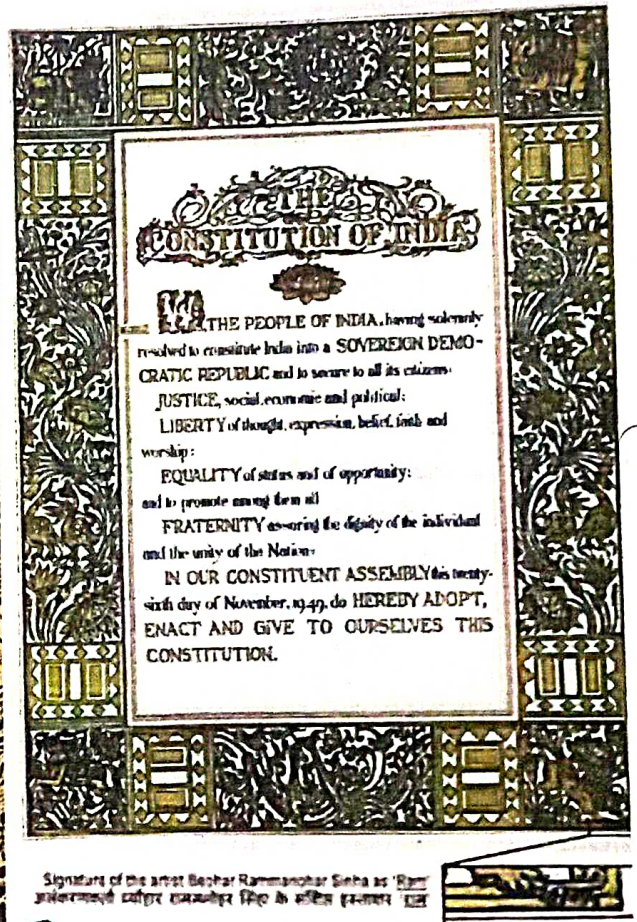 THE
CONSTITUTION OF INDIA
WE, THE PEOPLE OF INDIA, having solemnly
resolved to constitute India into a SOVEREIGN DEMO-
CRATIC REPUBLIC and to secure to all its citizens:
JUSTICE, social, economic and political;
LIBERTY of thought, expression, belief, faith and
worship;
EQUALITY of status and of opportunity;
and to promote among them all
FRATERNITY assuring the dignity of the individual
and the unity of the Nation;
IN OUR CONSTITUENT ASSEMBLY this twenty-
sixth day of November, 1949, do HEREBY ADOPT,
ENACT AND GIVE TO OURSELVES THIS
CONSTITUTION.
Signature of the artist Beohar Rammanohar Sinha as 'Ram'
ब्यौहार राममनोहर सिंहा के संक्षिप्त हस्ताक्षर 'राम'